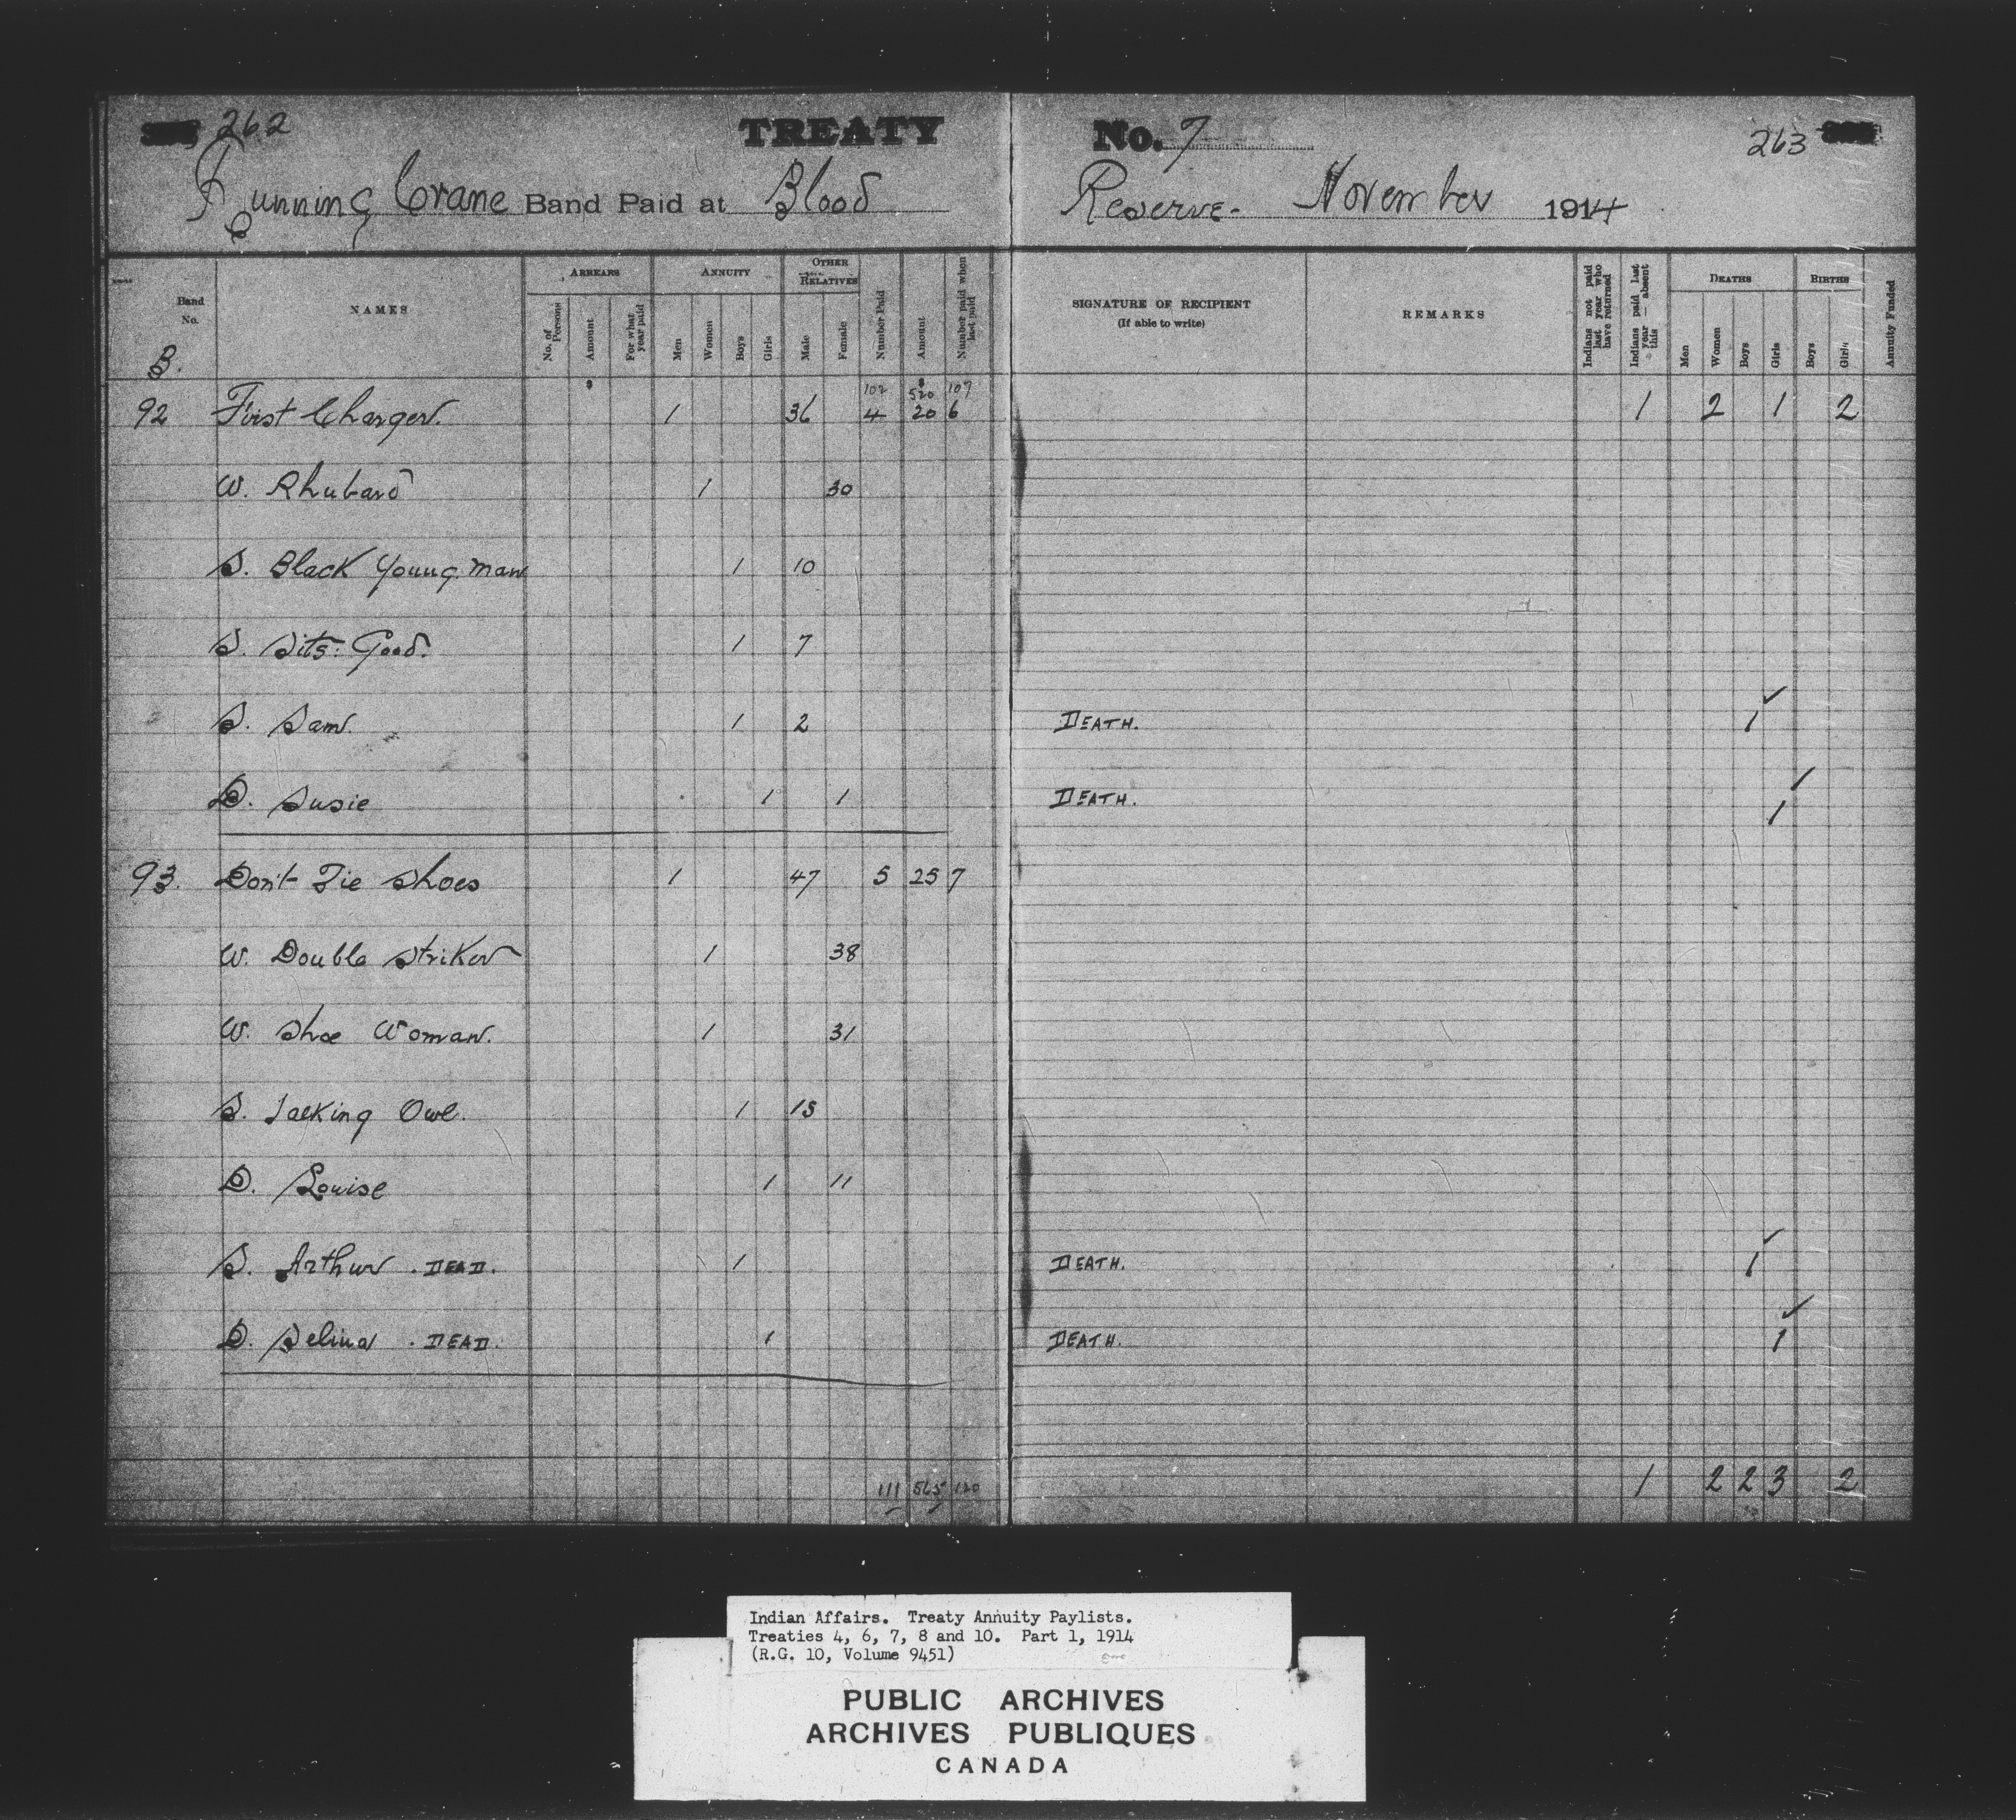 262 TREATY No. 7 263
Running Crane Band Paid at Blood Reserve. November 1914
Band No. NAMES ARREARS ANNUITY OTHER RELATIVES Number Paid Amount Number paid when last paid SIGNATURE OF RECIPIENT (If able to write) REMARKS Indians not paid last year who have returned Indians paid last year — absent this DEATHS BIRTHS Annuity Funded
No. of Persons Amount For what year paid Men Women Boys Girls Male Female Men Women Boys Girls Boys Girls
B.
$ 102 $ 520 107
92 First Charger. 1 36 4 20 6 1 2 1 2
W. Rhubard 1 30
S. Black Young Man 1 10
S. Sits Good. 1 7
S. Sam. 1 2 DEATH. 1
D. Susie 1 1 DEATH. 1
93. Don't Tie Shoes 1 47 5 25 7
W. Double Striker 1 38
W. Shoe Woman. 1 31
S. Talking Owl. 1 15
D. Louise 1 11
S. Arthur . DEAD. 1 DEATH. 1
D. Selina . DEAD. 1 DEATH. 1
111 565 120 1 2 2 3 2
Indian Affairs. Treaty Annuity Paylists.
Treaties 4, 6, 7, 8 and 10. Part 1, 1914
(R.G. 10, Volume 9451)
PUBLIC ARCHIVES
ARCHIVES PUBLIQUES
CANADA